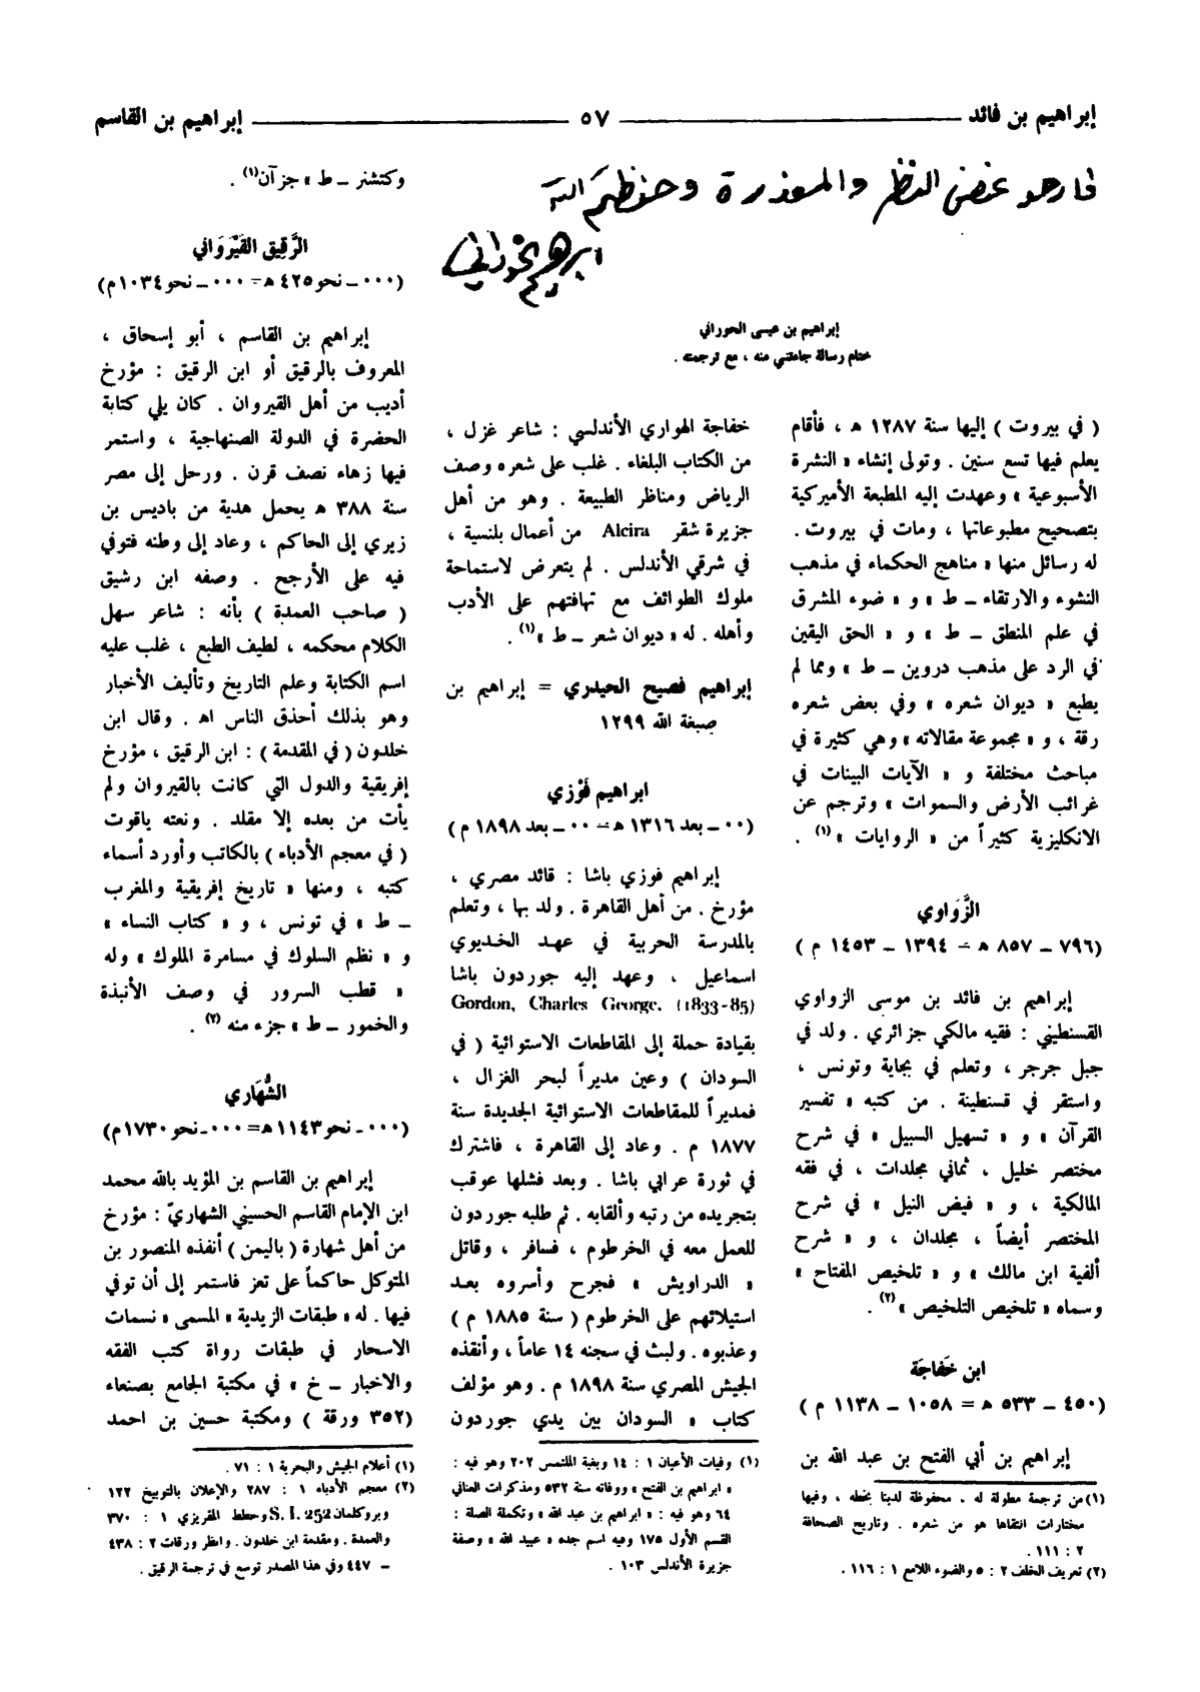 إبراهيم بن فائد ٥٧ إبراهيم بن القاسم
فارجو غض النظر والمعذرة وحفظكم الله
ابرهيم الحوراني
إبراهيم بن عيسى الحوراني
ختام رسالة جاءتني منه ، مع ترجمته .
( في بيروت ) إليها سنة ١٢٨٧ هـ ، فأقام
يعلم فيها تسع سنين . وتولى إنشاء « النشرة
الأسبوعية » وعهدت إليه المطبعة الأميركية
بتصحيح مطبوعاتها ، ومات في بيروت .
له رسائل منها « مناهج الحكماء في مذهب
النشوء والارتقاء ــ ط » و « ضوء المشرق
في علم المنطق ــ ط » و « الحق اليقين
في الرد على مذهب دروين ــ ط » ومما لم
يطبع « ديوان شعره » وفي بعض شعره
رقة ، و « مجموعة مقالاته » وهي كثيرة في
مباحث مختلفة و « الآيات البينات في
غرائب الأرض والسموات » وترجم عن
الانكليزية كثيراً من « الروايات » (١) .
الزَّوَاوي
(٧٩٦ ــ ٨٥٧ هـ = ١٣٩٤ ــ ١٤٥٣ م )
إبراهيم بن فائد بن موسى الزواوي
القسنطيني : فقيه مالكي جزائري . ولد في
جبل جرجر ، وتعلم في بجاية وتونس ،
واستقر في قسنطينة . من كتبه « تفسير
القرآن » و « تسهيل السبيل » في شرح
مختصر خليل ، ثماني مجلدات ، في فقه
المالكية ، و « فيض النيل » في شرح
المختصر أيضاً ، مجلدان ، و « شرح
ألفية ابن مالك » و « تلخيص المفتاح »
وسماه « تلخيص التلخيص » (٢) .
ابن خَفاجَة
(٤٥٠ ــ ٥٣٣ هـ = ١٠٥٨ ــ ١١٣٨ م )
إبراهيم بن أبي الفتح بن عبد الله بن
(١) من ترجمة مطولة له ، محفوظة لدينا بخطه ، وفيها
مختارات انتقاها هو من شعره . وتاريخ الصحافة
٢ : ١١١ .
(٢) تعريف الخلف ٢ : ٥ والضوء اللامع ١ : ١١٦ .
خفاجة الهواري الأندلسي : شاعر غزل ،
من الكتاب البلغاء . غلب على شعره وصف
الرياض ومناظر الطبيعة . وهو من أهل
جزيرة شقر Alcira من أعمال بلنسية ،
في شرقي الأندلس . لم يتعرض لاستماحة
ملوك الطوائف مع تهافتهم على الأدب
وأهله . له « ديوان شعر ــ ط » (١) .
إبراهيم فصيح الحيدري = إبراهيم بن
صبغة الله ١٢٩٩
ابراهيم فَوْزي
(٠٠ ــ بعد ١٣١٦ هـ = ٠٠ ــ بعد ١٨٩٨ م )
إبراهيم فوزي باشا : قائد مصري ،
مؤرخ . من أهل القاهرة . ولد بها ، وتعلم
بالمدرسة الحربية في عهد الخديوي
اسماعيل ، وعهد إليه جوردون باشا
Gordon, Charles George. (1833-85)
بقيادة حملة إلى المقاطعات الاستوائية ( في
السودان ) وعين مديراً لبحر الغزال ،
فمديراً للمقاطعات الاستوائية الجديدة سنة
١٨٧٧ م . وعاد إلى القاهرة ، فاشترك
في ثورة عرابي باشا . وبعد فشلها عوقب
بتجريده من رتبه وألقابه . ثم طلبه جوردون
للعمل معه في الخرطوم ، فسافر ، وقاتل
« الدراويش » فجرح وأسروه بعد
استيلائهم على الخرطوم ( سنة ١٨٨٥ م )
وعذبوه . ولبث في سجنه ١٤ عاماً ، وأنقذه
الجيش المصري سنة ١٨٩٨ م . وهو مؤلف
كتاب « السودان بين يدي جوردون
(١) وفيات الأعيان ١ : ١٤ وبغية الملتمس ٢٠٢ وهو فيه :
« ابراهيم بن الفتح » ووفاته سنة ٥٣٢ ومذكرات العناني
٦٤ وهو فيه : « ابراهيم بن عبد الله » وتكملة الصلة :
القسم الأول ١٧٥ وفيه اسم جده « عبيد الله » وصفة
جزيرة الأندلس ١٠٣ .
وكتشنر ــ ط » جزآن (١) .
الرَّقِيق القَيْرَواني
(٠٠٠ ــ نحو ٤٢٥ هـ = ٠٠٠ ــ نحو ١٠٣٤ م)
إبراهيم بن القاسم ، أبو إسحاق ،
المعروف بالرقيق أو ابن الرقيق : مؤرخ
أديب من أهل القيروان . كان يلي كتابة
الحضرة في الدولة الصنهاجية ، واستمر
فيها زهاء نصف قرن . ورحل إلى مصر
سنة ٣٨٨ هـ يحمل هدية من باديس بن
زيري إلى الحاكم ، وعاد إلى وطنه فتوفي
فيه على الأرجح . وصفه ابن رشيق
( صاحب العمدة ) بأنه : شاعر سهل
الكلام محكمه ، لطيف الطبع ، غلب عليه
اسم الكتابة وعلم التاريخ وتأليف الأخبار
وهو بذلك أحذق الناس اهـ . وقال ابن
خلدون ( في المقدمة ) : ابن الرقيق ، مؤرخ
إفريقية والدول التي كانت بالقيروان ولم
يأت من بعده إلا مقلد . ونعته ياقوت
( في معجم الأدباء ) بالكاتب وأورد أسماء
كتبه ، ومنها « تاريخ إفريقية والمغرب
ــ ط » في تونس ، و « كتاب النساء »
و « نظم السلوك في مسامرة الملوك » وله
« قطب السرور في وصف الأنبذة
والخمور ــ ط » جزء منه (٢) .
الشُّهَاري
(٠٠٠ ــ نحو ١١٤٣ هـ = ٠٠٠ ــ نحو ١٧٣٠ م)
إبراهيم بن القاسم بن المؤيد بالله محمد
ابن الإمام القاسم الحسيني الشهاريّ : مؤرخ
من أهل شهارة ( باليمن ) أنفذه المنصور بن
المتوكل حاكماً على تعز فاستمر إلى أن توفي
فيها . له « طبقات الزيدية » المسمى « نسمات
الاسحار في طبقات رواة كتب الفقه
والاخبار ــ خ » في مكتبة الجامع بصنعاء
(٣٥٢ ورقة ) ومكتبة حسين بن احمد
(١) أعلام الجيش والبحرية ١ : ٧١ .
(٢) معجم الأدباء ١ : ٢٨٧ والإعلان بالتوبيخ ١٢٢
وبروكلمان S. I. 252 وخطط المقريزي ١ : ٣٧٠
والعمدة . ومقدمة ابن خلدون . وانظر ورقات ٢ : ٤٣٨
ــ ٤٤٧ وفي هذا المصدر توسع في ترجمة الرقيق .